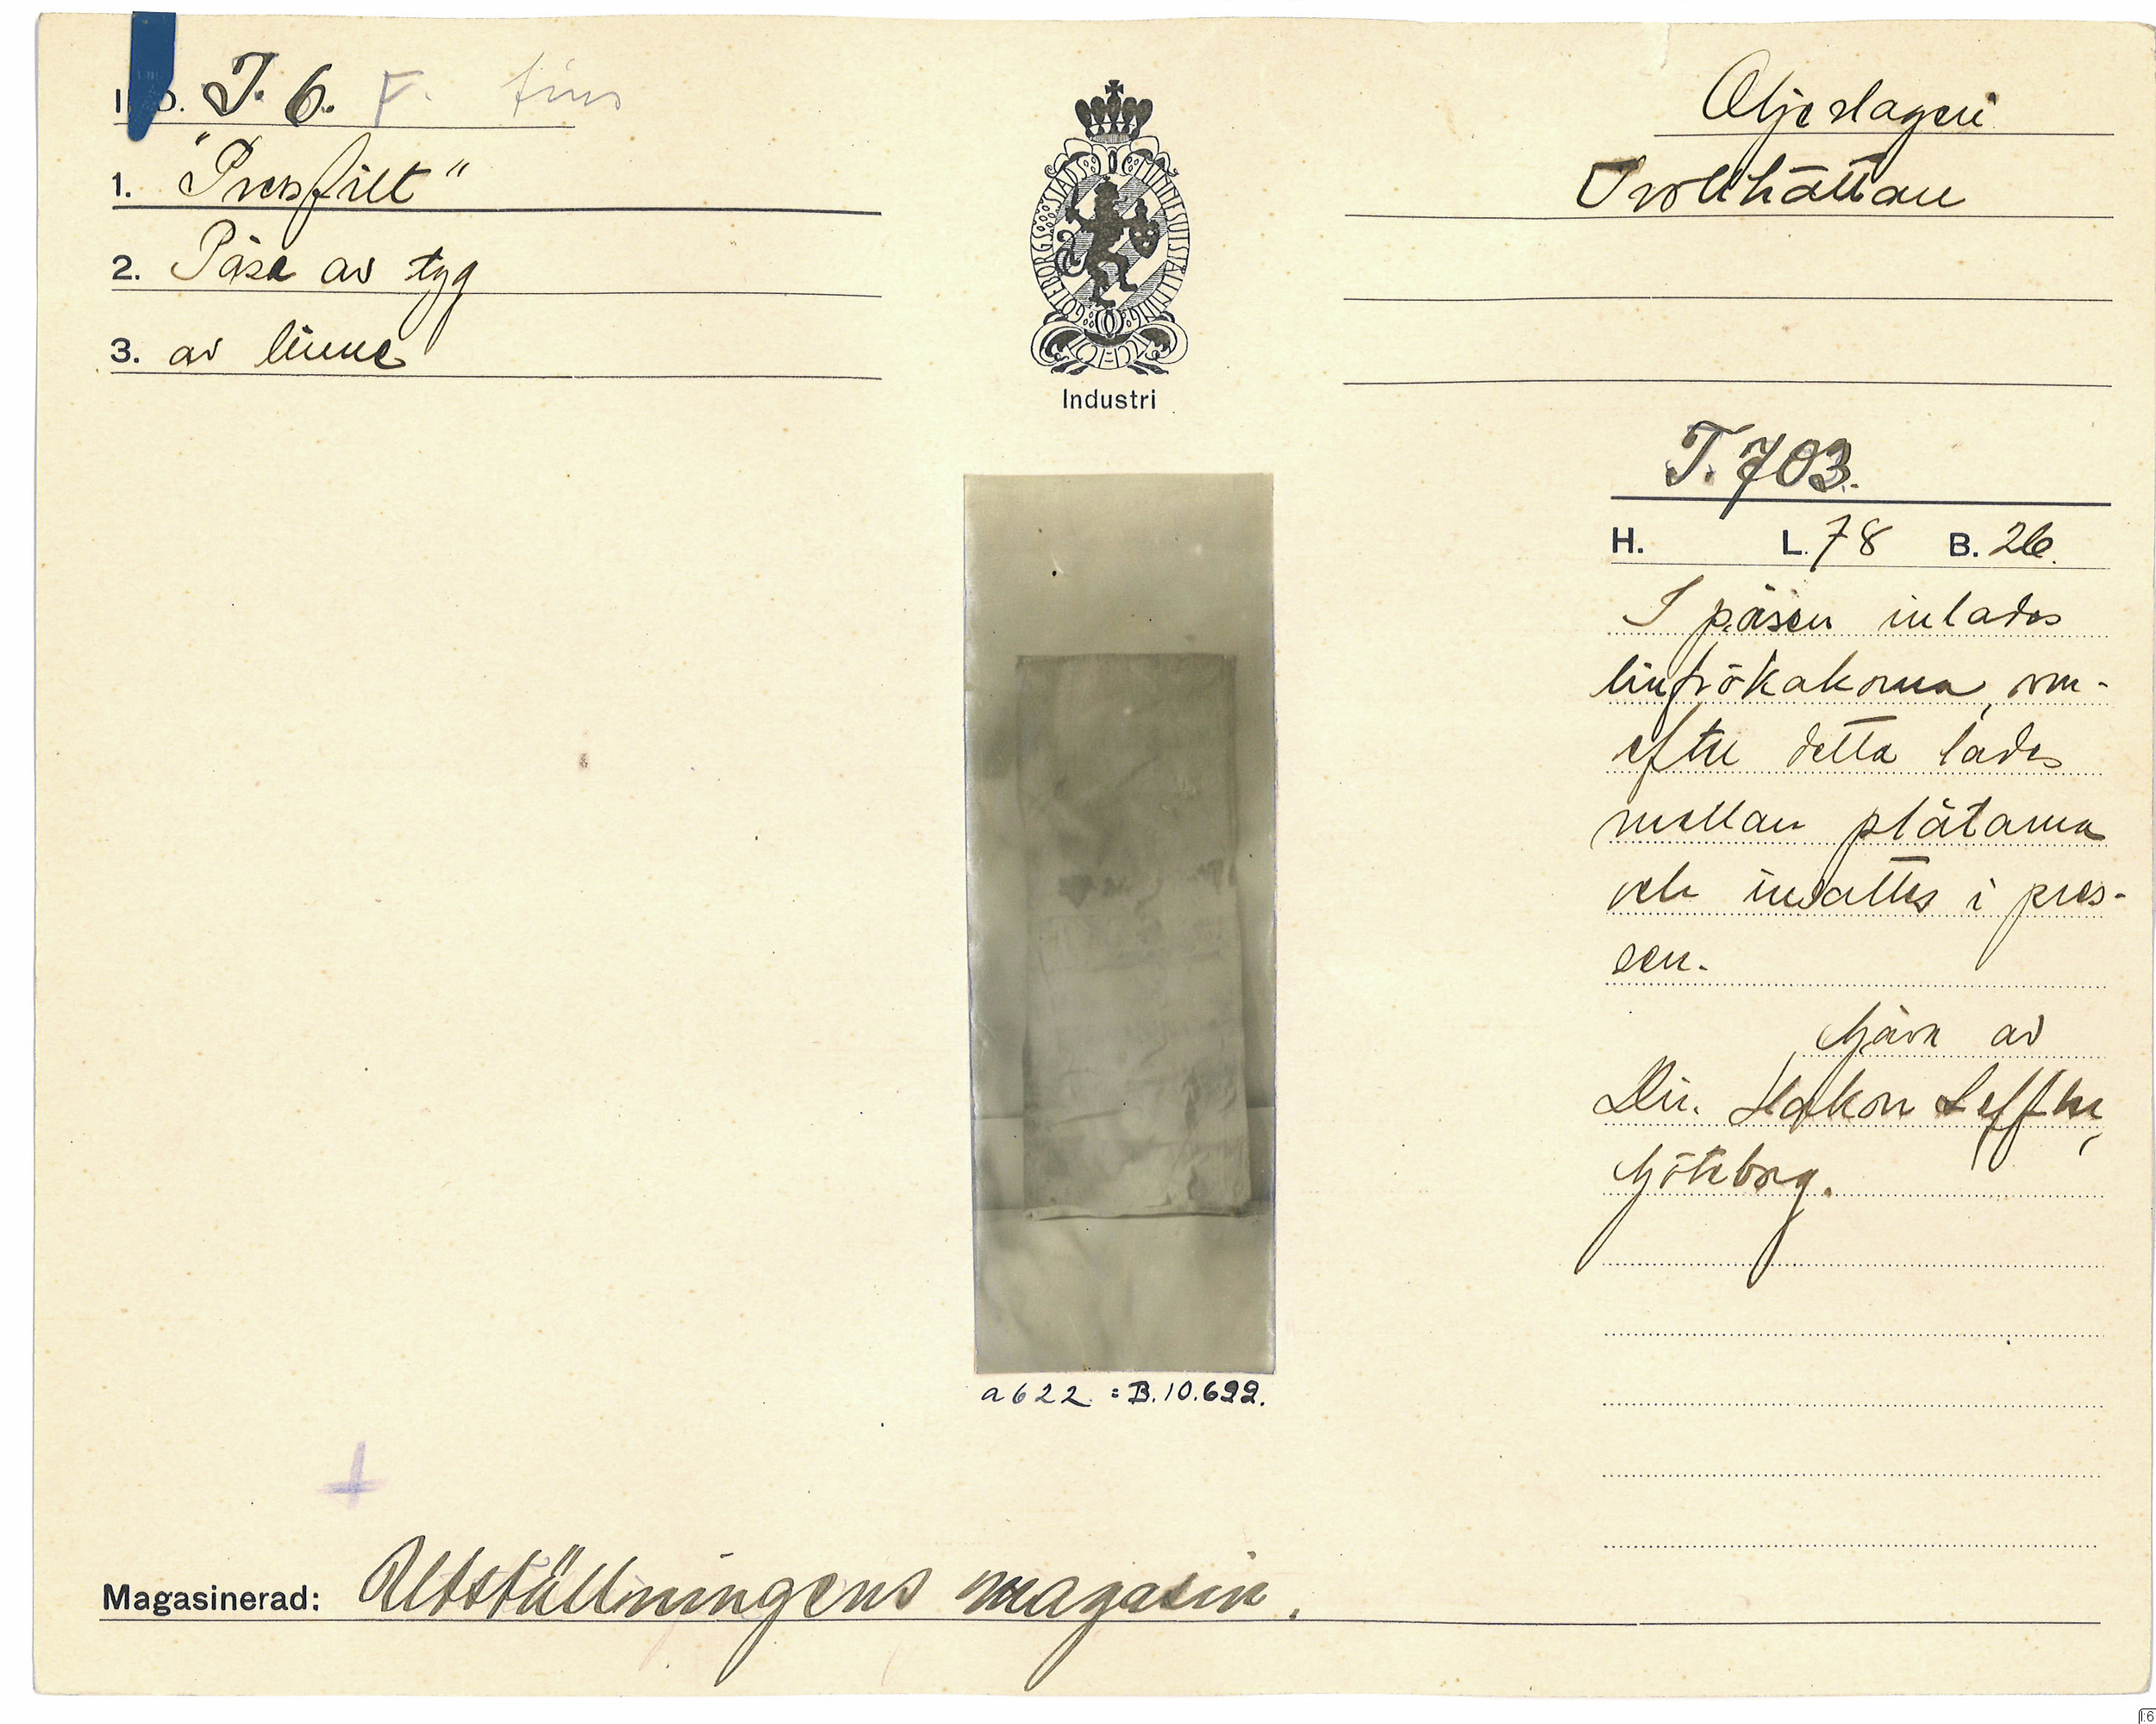 I. 6. F. finns
1. "Pressfilt"
2. Påse av tyg
3. av linne
GÖTEBORGS STADS MINNESUTSTÄLLNING
Industri
Oljeslageri
Trollhättan
T. 703.
H. L. 78 B. 26.
I påsen inlades
linfrökakorna, var-
efter detta lades
mellan plåtarna
och insattes i pres-
sen.
Gåva av
Dir. Hakon Leffler,
Göteborg.
a 622. = B.10.622.
Magasinerad: Utställningens magasin.